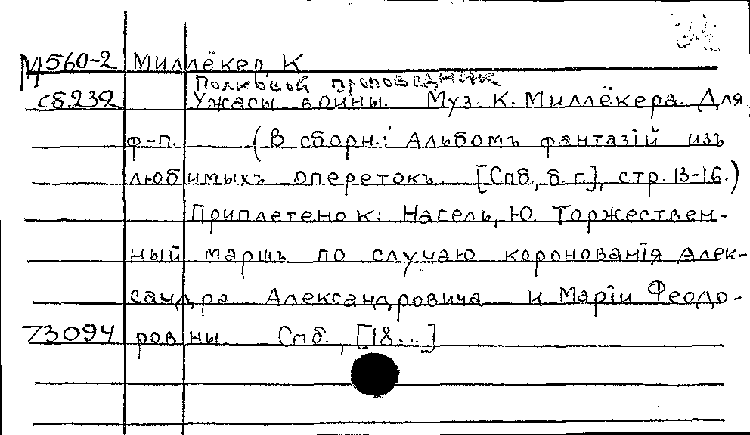 М560-2 Миллёкер К
Полковой проповедник
сб232 Ужасы войны. Муз. К. Миллёкера. Для
ф-п. (В сборн.: Альбомъ фантазій изъ
любимыхъ опереток. [Спб, б.г.], стр. 13-16.)
Приплетено к: Насель, Ю. Торжествен-
ный маршъ по случаю коронованія Алек-
сандра Александровича и Маріи Феодо-
73094 ровны. Спб, [18...]